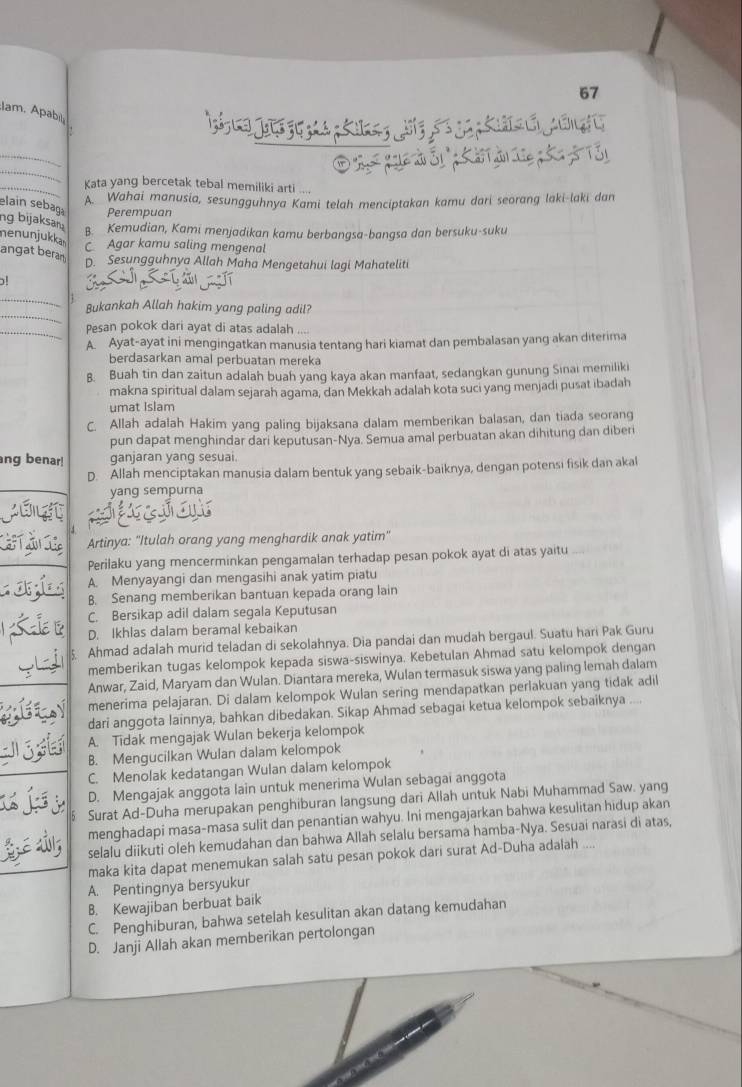 67
lam. Apabil
يٰٓاَيُّهَا النَّاسُ اِنَّا خَلَقْنٰكُمْ مِّنْ ذَكَرٍ وَّاُنْثٰى وَجَعَلْنٰكُمْ شُعُوْبًا وَّقَبَاۤىِٕلَ لِتَعَارَفُوْا
اِنَّ اَكْرَمَكُمْ عِنْدَ اللّٰهِ اَتْقٰىكُمْ ۗ اِنَّ اللّٰهَ عَلِيْمٌ خَبِيْرٌ ١٣
Kata yang bercetak tebal memiliki arti ....
elain sebaga
A. Wahai manusia, sesungguhnya Kami telah menciptakan kamu dari seorang laki-laki dan
Perempuan
ng bijaksana
B. Kemudian, Kami menjadikan kamu berbangsa-bangsa dan bersuku-suku
nenunjukka
C. Agar kamu saling mengenal
angat beran
D. Sesungguhnya Allah Maha Mengetahui lagi Mahateliti
اَلَيْسَ اللّٰهُ بِاَحْكَمِ الْحٰكِمِيْنَ
3.
Bukankah Allah hakim yang paling adil?
Pesan pokok dari ayat di atas adalah ....
A. Ayat-ayat ini mengingatkan manusia tentang hari kiamat dan pembalasan yang akan diterima
berdasarkan amal perbuatan mereka
B. Buah tin dan zaitun adalah buah yang kaya akan manfaat, sedangkan gunung Sinai memiliki
makna spiritual dalam sejarah agama, dan Mekkah adalah kota suci yang menjadi pusat ibadah
umat Islam
C. Allah adalah Hakim yang paling bijaksana dalam memberikan balasan, dan tiada seorang
pun dapat menghindar dari keputusan-Nya. Semua amal perbuatan akan dihitung dan diberi
ganjaran yang sesuai.
ang benar!
D. Allah menciptakan manusia dalam bentuk yang sebaik-baiknya, dengan potensi fisik dan akal
yang sempurna
يٰٓاَيُّهَا النَّاسُ
فَذٰلِكَ الَّذِيْ يَدُعُّ الْيَتِيْمَ
4.
Artinya: "Itulah orang yang menghardik anak yatim"
Perilaku yang mencerminkan pengamalan terhadap pesan pokok ayat di atas yaitu ....
A. Menyayangi dan mengasihi anak yatim piatu
B. Senang memberikan bantuan kepada orang lain
C. Bersikap adil dalam segala Keputusan
D. Ikhlas dalam beramal kebaikan
5. Ahmad adalah murid teladan di sekolahnya. Dia pandai dan mudah bergaul. Suatu hari Pak Guru
memberikan tugas kelompok kepada siswa-siswinya. Kebetulan Ahmad satu kelompok dengan
Anwar, Zaid, Maryam dan Wulan. Diantara mereka, Wulan termasuk siswa yang paling lemah dalam
menerima pelajaran. Di dalam kelompok Wulan sering mendapatkan perlakuan yang tidak adil
dari anggota lainnya, bahkan dibedakan. Sikap Ahmad sebagai ketua kelompok sebaiknya ....
A. Tidak mengajak Wulan bekerja kelompok
B. Mengucilkan Wulan dalam kelompok
C. Menolak kedatangan Wulan dalam kelompok
D. Mengajak anggota lain untuk menerima Wulan sebagai anggota
6. Surat Ad-Duha merupakan penghiburan langsung dari Allah untuk Nabi Muhammad Saw. yang
menghadapi masa-masa sulit dan penantian wahyu. Ini mengajarkan bahwa kesulitan hidup akan
selalu diikuti oleh kemudahan dan bahwa Allah selalu bersama hamba-Nya. Sesuai narasi di atas,
maka kita dapat menemukan salah satu pesan pokok dari surat Ad-Duha adalah ....
A. Pentingnya bersyukur
B. Kewajiban berbuat baik
C. Penghiburan, bahwa setelah kesulitan akan datang kemudahan
D. Janji Allah akan memberikan pertolongan